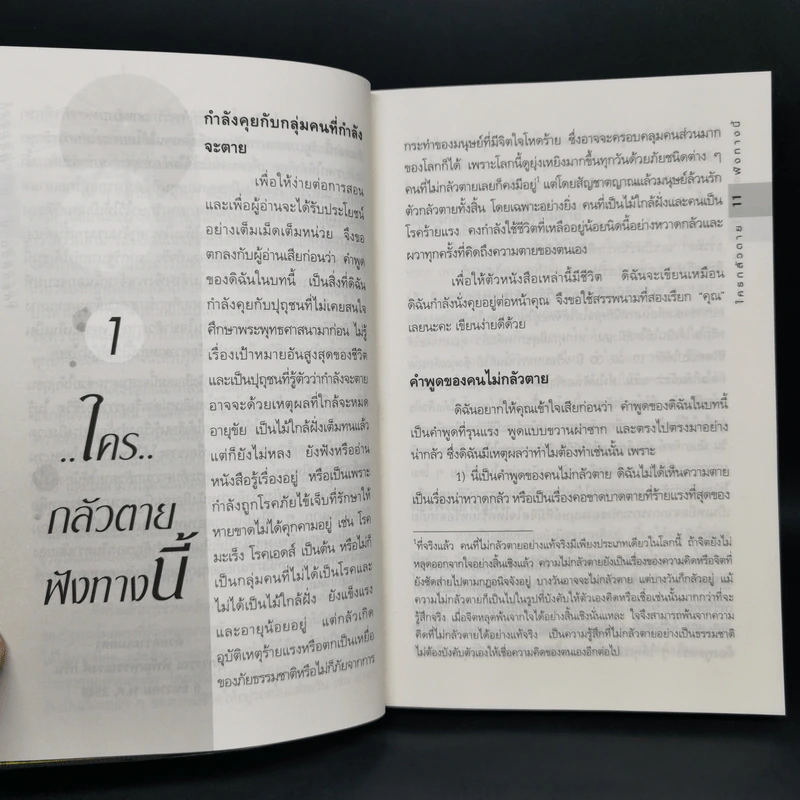 1
..ใคร..
กลัวตาย
ฟังทางนี้
กำลังคุยกับกลุ่มคนที่กำลัง
จะตาย
เพื่อให้ง่ายต่อการสอน
และเพื่อผู้อ่านจะได้รับประโยชน์
อย่างเต็มเม็ดเต็มหน่วย จึงขอ
ตกลงกับผู้อ่านเสียก่อนว่า คำพูด
ของดิฉันในบทนี้ เป็นสิ่งที่ดิฉัน
กำลังคุยกับปุถุชนที่ไม่เคยสนใจ
ศึกษาพระพุทธศาสนามาก่อน ไม่รู้
เรื่องเป้าหมายอันสูงสุดของชีวิต
และเป็นปุถุชนที่รู้ตัวว่ากำลังจะตาย
อาจจะด้วยเหตุผลที่ใกล้จะหมด
อายุขัย เป็นไม้ใกล้ฝั่งเต็มทนแล้ว
แต่ก็ยังไม่หลง ยังฟังหรืออ่าน
หนังสือรู้เรื่องอยู่ หรือเป็นเพราะ
กำลังถูกโรคภัยไข้เจ็บที่รักษาให้
หายขาดไม่ได้คุกคามอยู่ เช่น โรค
มะเร็ง โรคเอดส์ เป็นต้น หรือไม่ก็
เป็นกลุ่มคนที่ไม่ได้เป็นโรคและ
ไม่ได้เป็นไม้ใกล้ฝั่ง ยังแข็งแรง
และอายุน้อยอยู่ แต่กลัวเกิด
อุบัติเหตุร้ายแรงหรือตกเป็นเหยื่อ
ของภัยธรรมชาติหรือไม่ก็ภัยจากการ
กระทำของมนุษย์ที่มีจิตใจโหดร้าย ซึ่งอาจจะครอบคลุมคนส่วนมาก
ของโลกก็ได้ เพราะโลกนี้ดูยุ่งเหยิงมากขึ้นทุกวันด้วยภัยชนิดต่าง ๆ
คนที่ไม่กลัวตายเลยก็คงมีอยู่¹ แต่โดยสัญชาตญาณแล้วมนุษย์ล้วนรัก
ตัวกลัวตายทั้งสิ้น โดยเฉพาะอย่างยิ่ง คนที่เป็นไม้ใกล้ฝั่งและคนเป็น
โรคร้ายแรง คงกำลังใช้ชีวิตที่เหลืออยู่น้อยนิดนี้อย่างหวาดกลัวและ
ผวาทุกครั้งที่คิดถึงความตายของตนเอง
เพื่อให้ตัวหนังสือเหล่านี้มีชีวิต ดิฉันจะเขียนเหมือน
ดิฉันกำลังนั่งคุยอยู่ต่อหน้าคุณ จึงขอใช้สรรพนามที่สองเรียก "คุณ"
เลยนะคะ เขียนง่ายดีด้วย
คำพูดของคนไม่กลัวตาย
ดิฉันอยากให้คุณเข้าใจเสียก่อนว่า คำพูดของดิฉันในบทนี้
เป็นคำพูดที่รุนแรง พูดแบบขวานผ่าซาก และตรงไปตรงมาอย่าง
น่ากลัว ซึ่งดิฉันมีเหตุผลว่าทำไมต้องทำเช่นนั้น เพราะ
1) นี่เป็นคำพูดของคนไม่กลัวตาย ดิฉันไม่ได้เห็นความตาย
เป็นเรื่องน่าหวาดกลัว หรือเป็นเรื่องคอขาดบาดตายที่ร้ายแรงที่สุดของ
¹ที่จริงแล้ว คนที่ไม่กลัวตายอย่างแท้จริงมีเพียงประเภทเดียวในโลกนี้ ถ้าจิตยังไม่
หลุดออกจากใจอย่างสิ้นเชิงแล้ว ความไม่กลัวตายยังเป็นเรื่องของความคิดหรือจิตที่
ยังซัดส่ายไปตามกฎอนิจจังอยู่ บางวันอาจจะไม่กลัวตาย แต่บางวันก็กลัวอยู่ แม้
ความไม่กลัวตายก็เป็นไปในรูปที่บังคับให้ตัวเองคิดหรือเชื่อเช่นนั้นมากกว่าที่จะ
รู้สึกจริง เมื่อจิตหลุดพ้นจากใจได้อย่างสิ้นเชิงนั่นแหละ ใจจึงสามารถพ้นจากความ
คิดที่ไม่กลัวตายได้อย่างแท้จริง เป็นความรู้สึกที่ไม่กลัวตายอย่างเป็นธรรมชาติ
ไม่ต้องบังคับตัวเองให้เชื่อความคิดของตนเองอีกต่อไป
ใครกลัวตาย 11 ฟังทางนี้